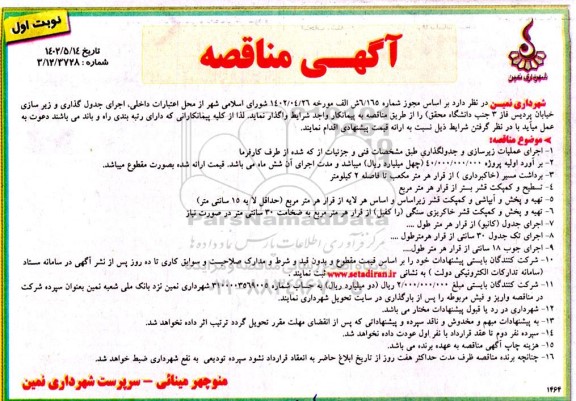 نوبت اول
آگهـی مناقصه
شهرداری نمین
تاریخ ۱۴۰۲/۵/۱۴
شماره : ۳/۱۲/۳۷۲۸
شهرداری نمین در نظر دارد بر اساس مجوز شماره ۱۶۵/ش الف مورخه ۱۴۰۲/۰۴/۲۶ شورای اسلامی شهر از محل اعتبارات داخلی، اجرای جدول گذاری و زیر سازی
خیابان پردیس فاز ۳ جنب دانشگاه محقق) را از طریق مناقصه به پیمانکار واجد شرایط واگذار نماید. لذا از کلیه پیمانکارانی که دارای رتبه بندی راه و باند می باشند دعوت به
عمل میآید با در نظر گرفتن شرایط ذیل نسبت به ارائه قیمت پیشنهادی اقدام نمایند.
موضوع مناقصه:
۱- اجرای عملیات زیرسازی و جدولگذاری طبق مشخصات فنی و جزئیات از که شده از طرف کارفرما
۲- بر آورد اولیه پروژه ۴۰/۰۰۰/۰۰۰/۰۰۰ (چهل میلیارد ریال) میباشد و مدت اجرای آن شش ماه می باشد. قیمت ارائه شده بصورت مقطوع میباشد.
۳- برداشت مسیر (خاکبرداری ) از قرار هر متر مکعب تا فاصله ۲ کیلومتر
۴- تسطیح و کمپکت قشر بستر از قرار هر متر مربع
۵- تهیه و پخش و آبپاشی و کمپکت قشر زیراساس و اساس هر لایه از قرار هر متر مربع (حداقل لا یه ۱۵ سانتی متر)
۶- تهیه و پخش و کمپکت قشر خاکریزی سنگی (را کفیل) از قرار هر متر مربع به ضخامت ۳۰ سانتی متر در صورت نیاز
۷- اجرای جدول (کانیو) از قرار هر متر طول ....
۸- اجرای تک جدول ۳۰ سانتی از قرار هرمترطول ....
۹- اجرای جوب ۱۸ سانتی از قرار هر متر طول...
۱۰- شرکت کنندگان بایستی پیشنهادات خود را بر اساس قیمت مقطوع و بدون قید و شرط و مدارک صلاحیت و سوابق کاری تا ده روز پس از نشر آگهی در سامانه ستاد
(سامانه تدارکات الکترونیکی دولت ) به نشانی www.setadiran.ir ثبت نمایند .
۱۱- شرکت کنندگان بایستی مبلغ ۲/۰۰۰/۰۰۰/۰۰۰ ریال (دو میلیارد ریال) به حساب شماره شهرداری نمین نزد بانک ملی شعبه نمین بعنوان سپرده شرکت
در مناقصه واریز و فیش مربوطه را پس از بارگذاری در سایت تحویل شهرداری نمایند.
۱۲- شهرداری در رد یا قبول پیشنهادات مختار می باشد.
۱۳- به پیشنهادات مبهم و مخدوش و ناقد سپرده و پیشنهاداتی که پس از انقضای مهلت مقرر تحویل گردد ترتیب اثر داده نخواهد شد.
۱۴- سپرده نفر دوم تا عقد قرارداد با نفر اول عودت داده نخواهد شد.
۱۵- هزینه چاپ آگهی مناقصه به عهده برنده می باشد.
۱۶- چنانچه برنده مناقصه ظرف مدت حداکثر هفت روز از تاریخ ابلاغ حاضر به انعقاد قرارداد نشود سپرده تودیعی به نفع شهرداری ضبط خواهد شد.
منوچهر مینائی – سرپرست شهرداری نمین
۱۴۶۴
ParsNamadData